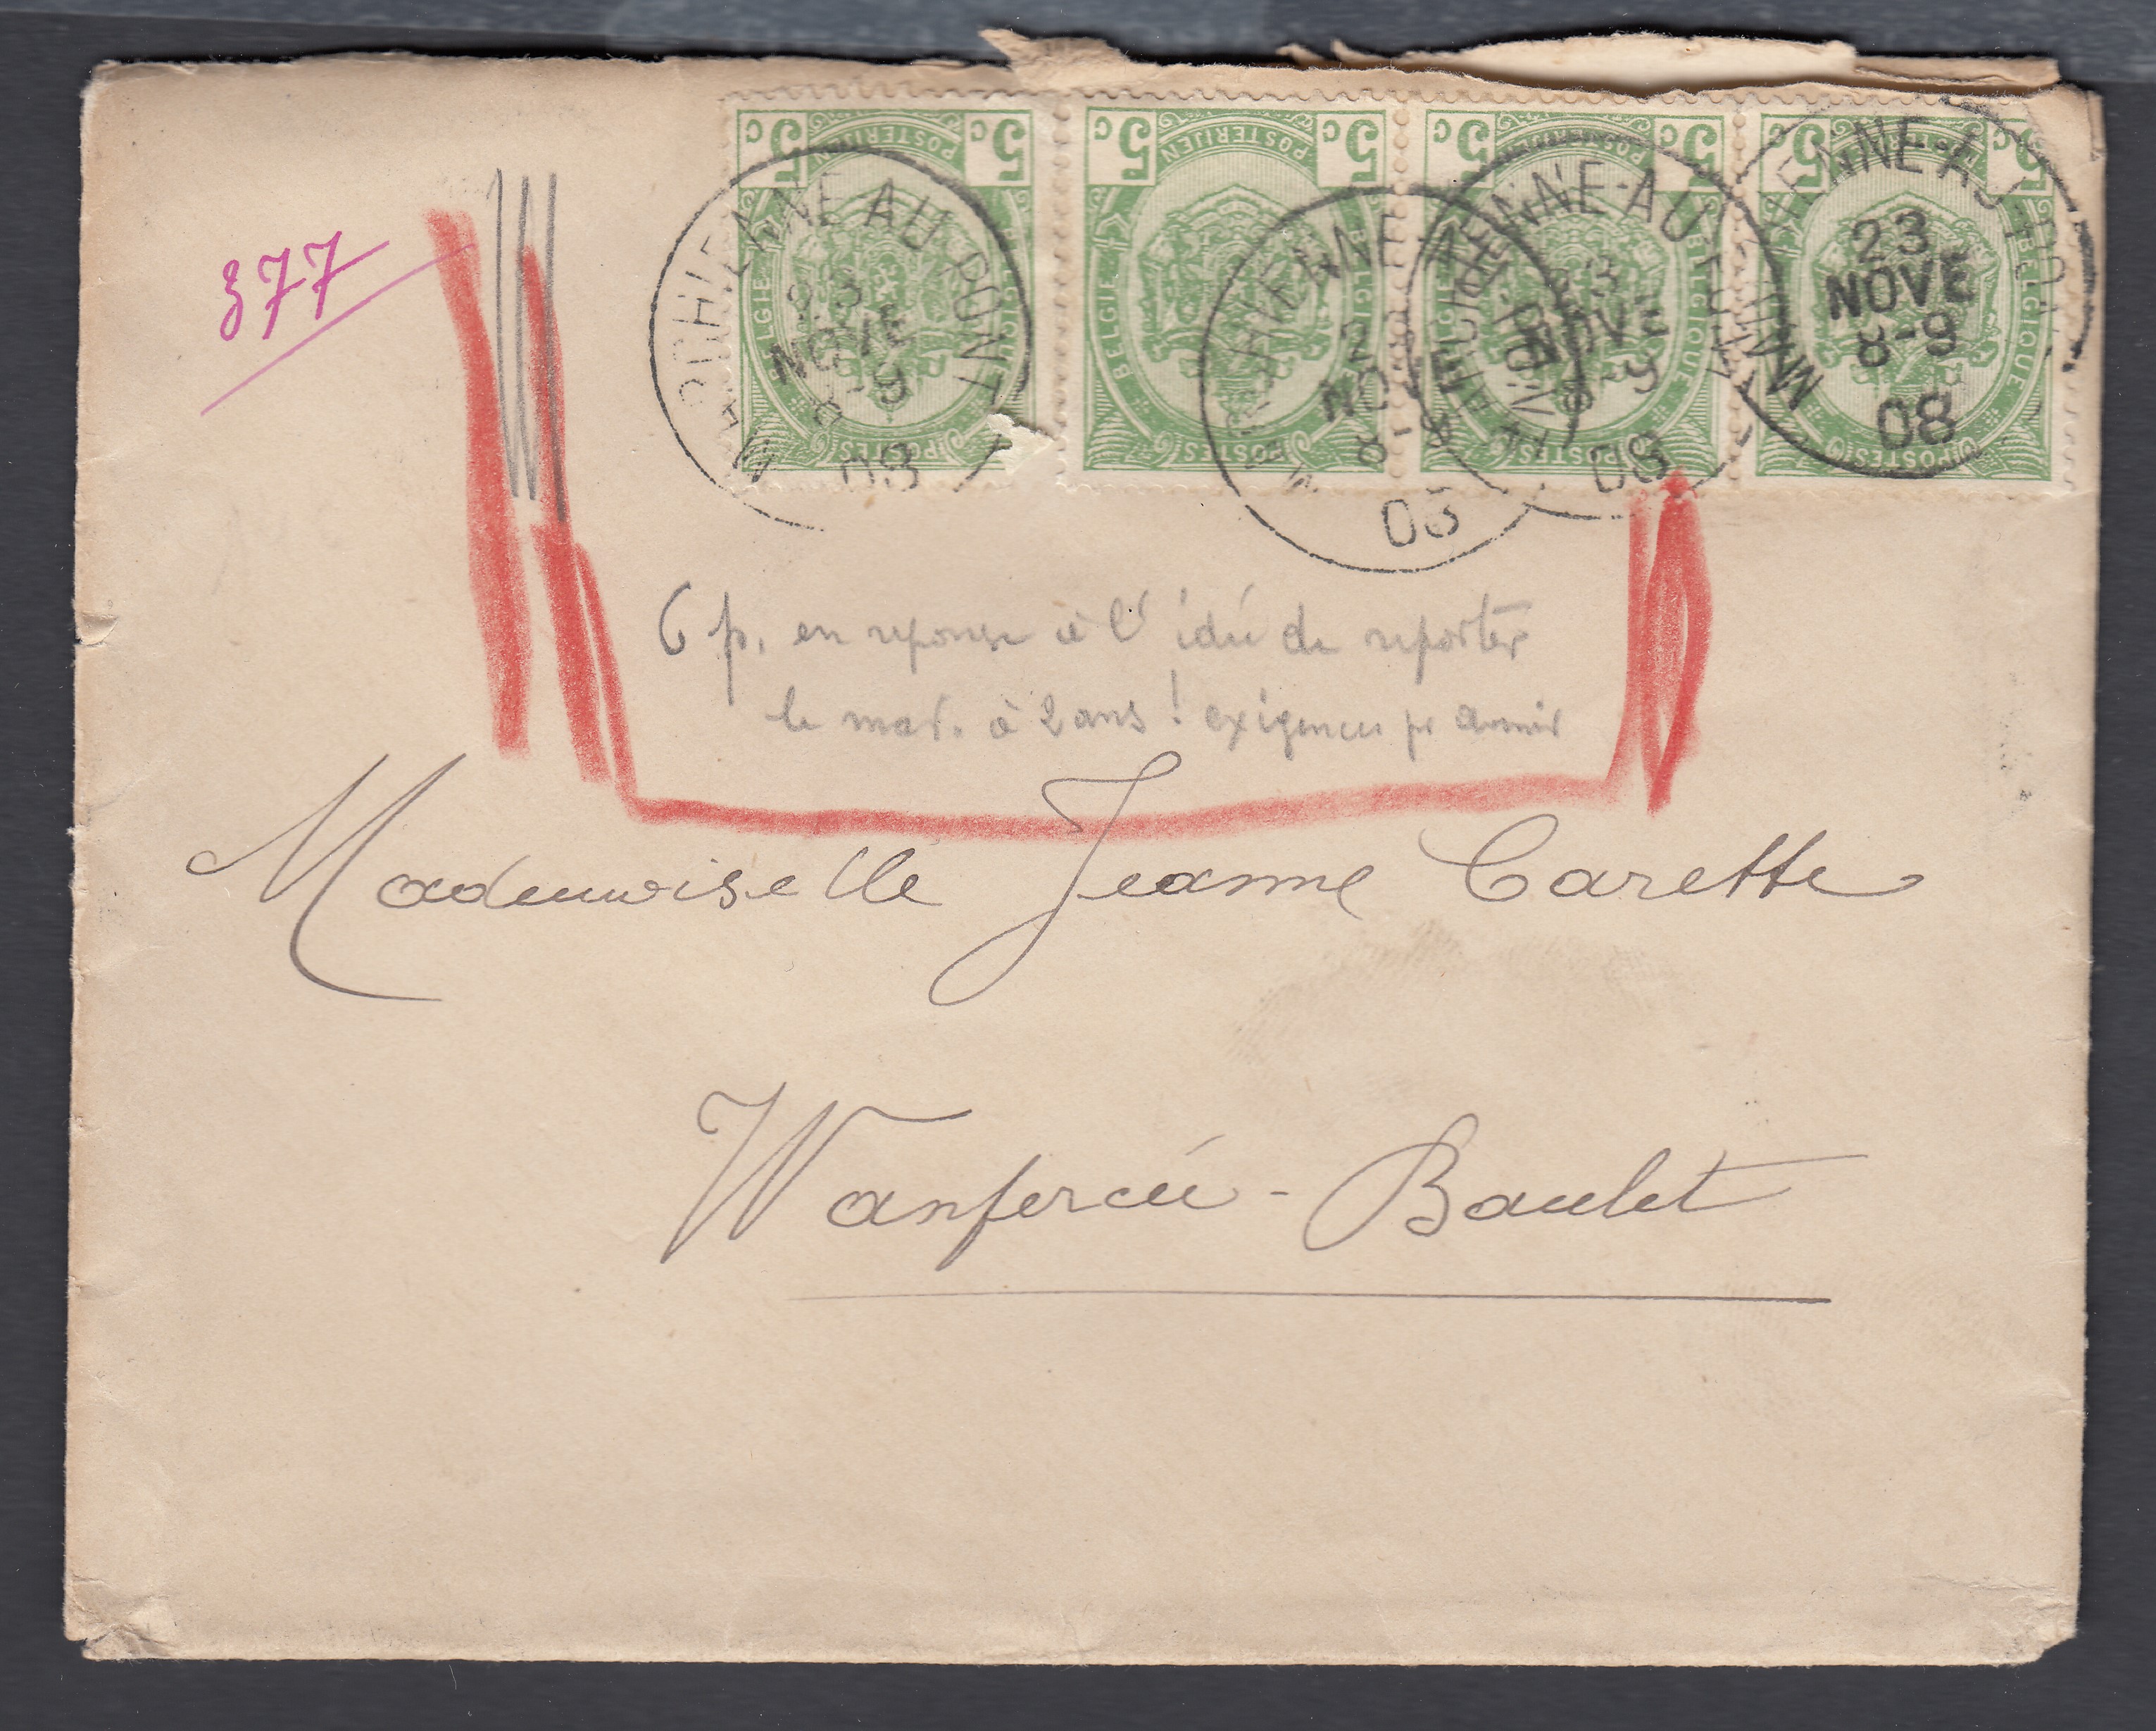 377
5c POSTERIJEN 5c
BELGIE BELGIQUE
POSTES
5c POSTERIJEN 5c
BELGIE BELGIQUE
POSTES
5c POSTERIJEN 5c
BELGIE BELGIQUE
POSTES
5c POSTERIJEN 5c
BELGIE BELGIQUE
POSTES
MARCHIENNE-AU-PONT
23
NOVE
8-9
08
MARCHIENNE-AU-PONT
23
NOVE
8-9
08
MARCHIENNE-AU-PONT
23
NOVE
8-9
08
MARCHIENNE-AU-PONT
23
NOVE
8-9
08
6 p. en réponse à l'idée de reporter
le mar. à 2 ans ! exigences pr avenir
Mademoiselle Jeanne Carette
Wanfercée-Baulet